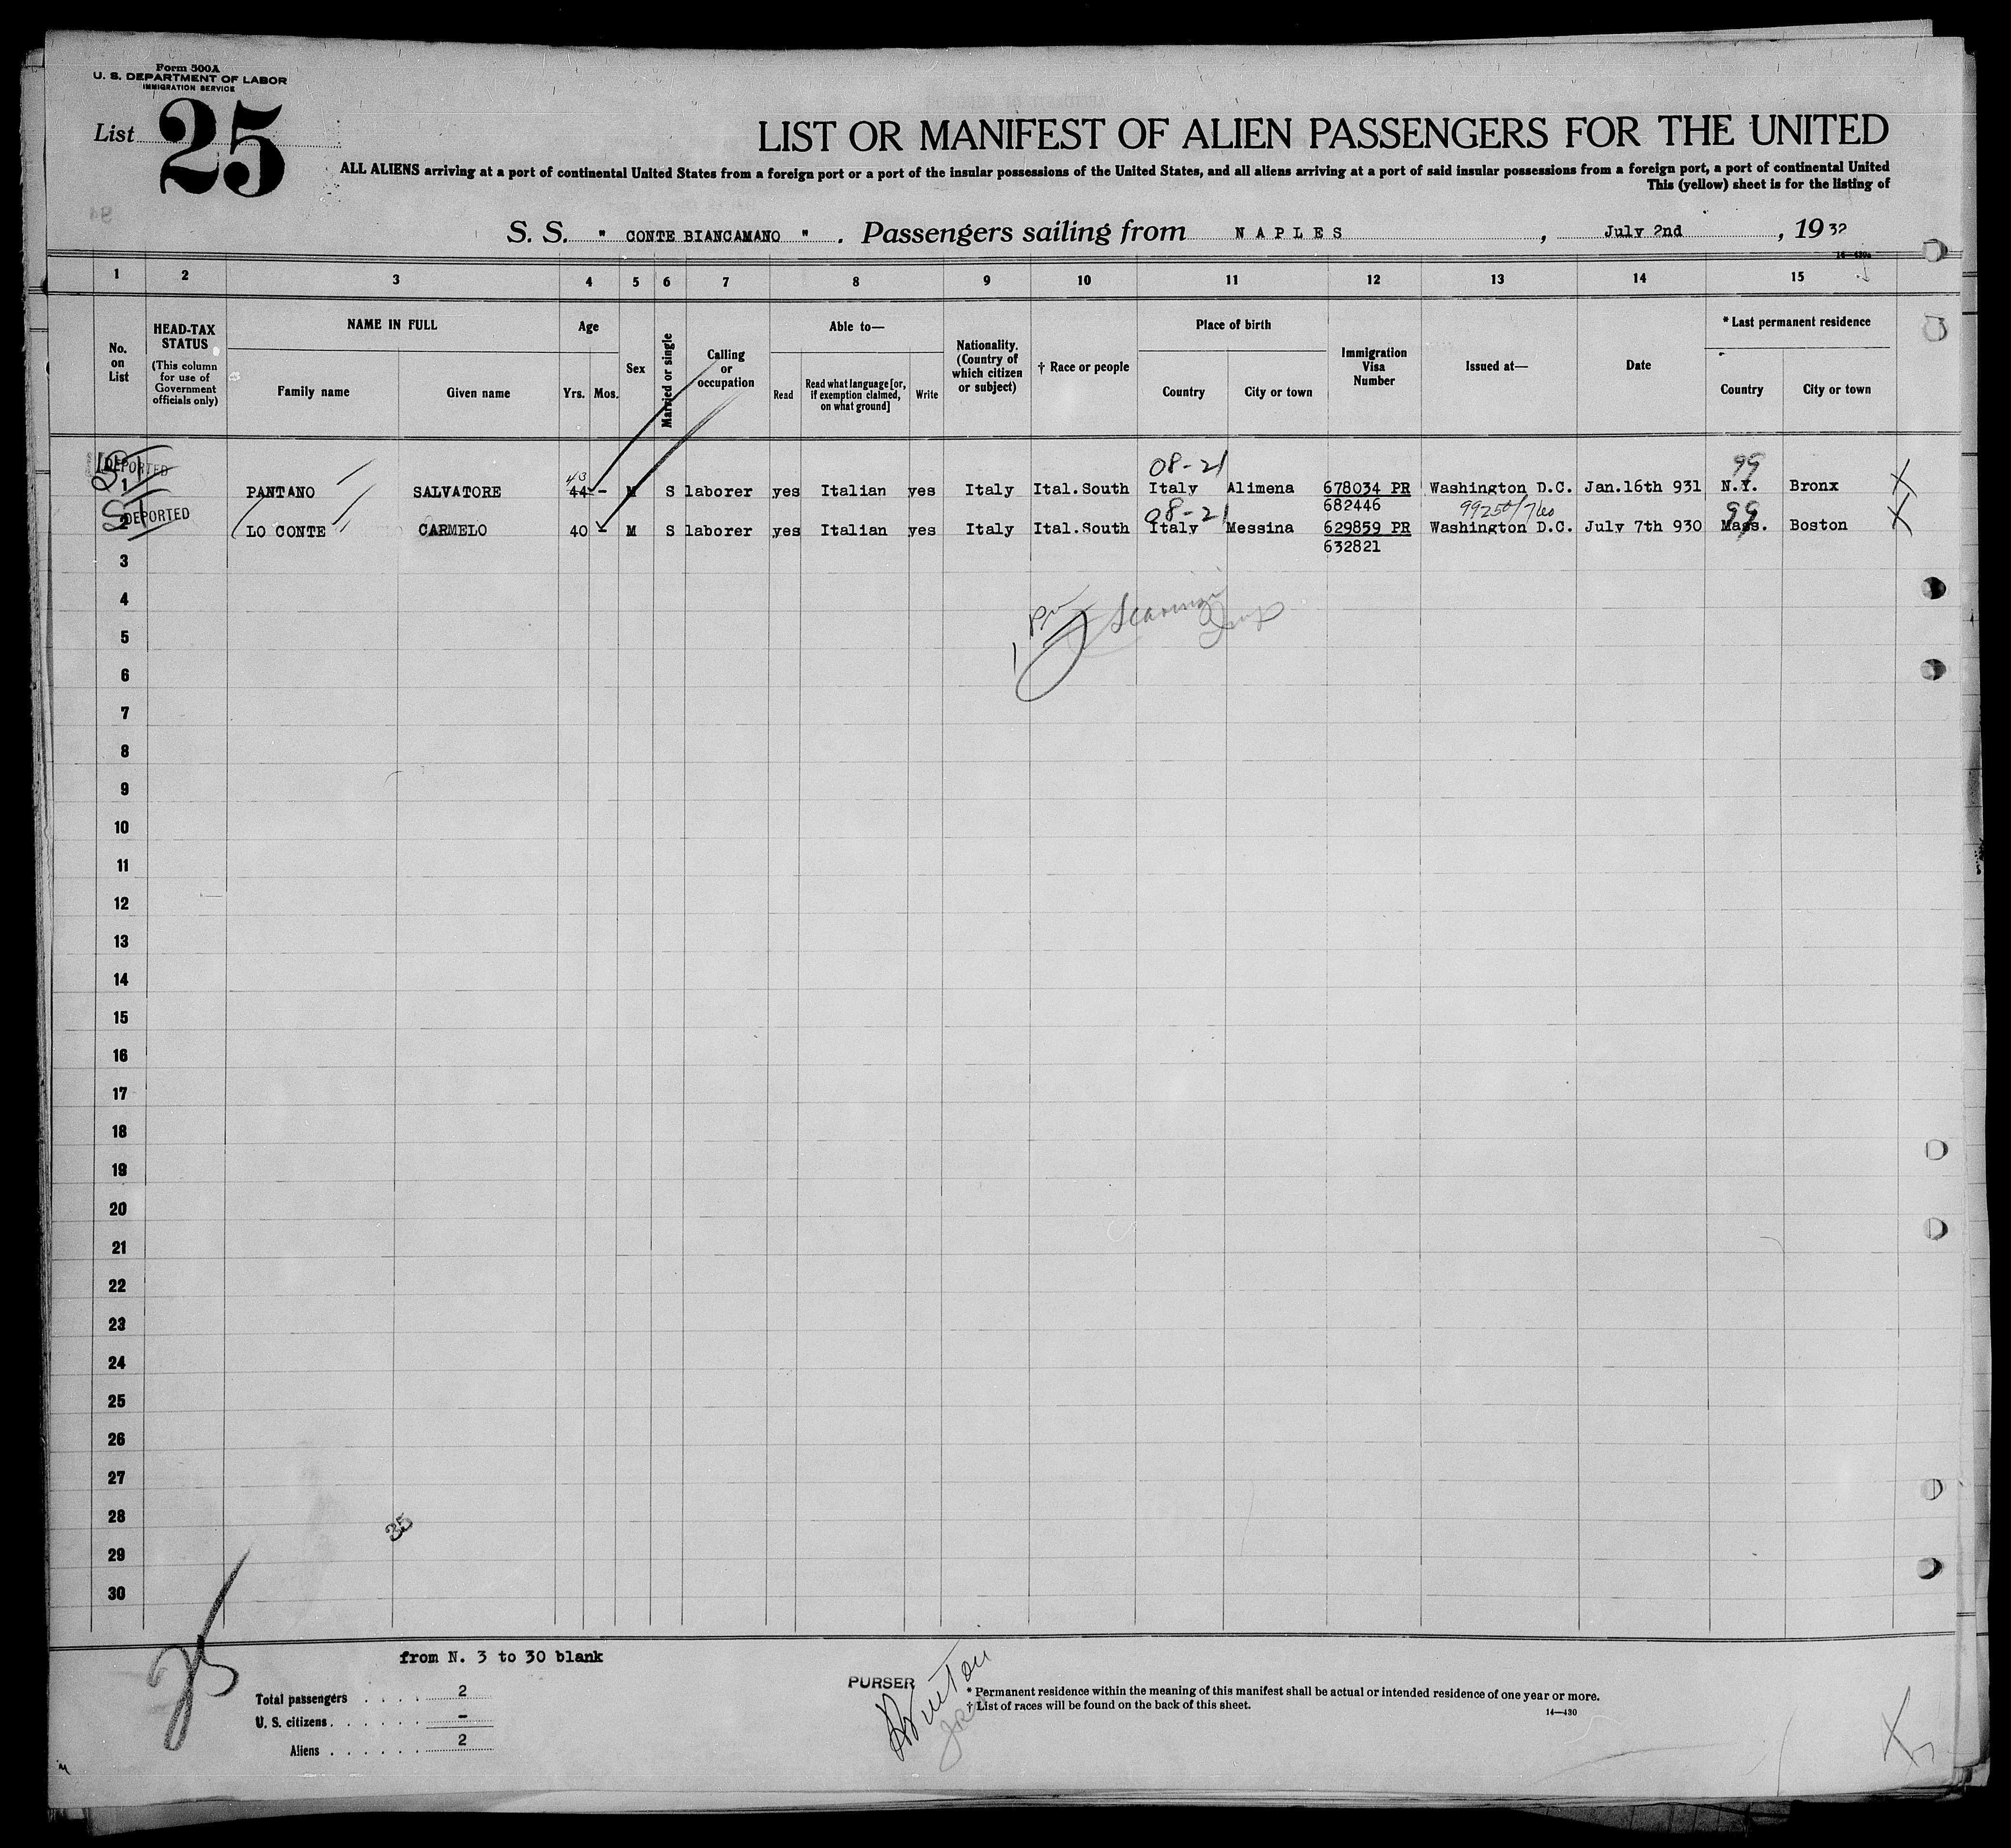 Form 500A
U. S. DEPARTMENT OF LABOR
IMMIGRATION SERVICE
List 25
LIST OR MANIFEST OF ALIEN PASSENGERS FOR THE UNITED
ALL ALIENS arriving at a port of continental United States from a foreign port or a port of the insular possessions of the United States, and all aliens arriving at a port of said insular possessions from a foreign port, a port of continental United
This (yellow) sheet is for the listing of
S. S. " CONTE BIANCAMANO " . Passengers sailing from NAPLES , July 2nd , 1932
1 2 3 4 5 6 7 8 9 10 11 12 13 14 15
No. on List
HEAD-TAX STATUS
(This column for use of Government officials only)
NAME IN FULL
Family name
Given name
Age
Yrs. Mos.
Sex
Married or single
Calling or occupation
Able to—
Read
Read what language [or, if exemption claimed, on what ground]
Write
Nationality. (Country of which citizen or subject)
† Race or people
Place of birth
Country
City or town
Immigration Visa Number
Issued at—
Date
* Last permanent residence
Country
City or town
DEPORTED 08-21 99
1 PANTANO SALVATORE 44 43 - M S laborer yes Italian yes Italy Ital.South Italy Alimena 678034 PR Washington D.C. Jan.16th 931 N.Y. Bronx X
682446
DEPORTED 08-21 99
2 LO CONTE CARMELO 40 - M S laborer yes Italian yes Italy Ital.South Italy Messina 629859 PR Washington D.C. July 7th 930 Mass. Boston X
632821
3
4
5
6
7
8
9
10
11
12
13
14
15
16
17
18
19
20
21
22
23
24
25
26
27
28
29
30
25
from N. 3 to 30 blank
Total passengers . . . . 2
U. S. citizens . . . . . . -
Aliens . . . . . . 2
PURSER
* Permanent residence within the meaning of this manifest shall be actual or intended residence of one year or more.
† List of races will be found on the back of this sheet.
14—430